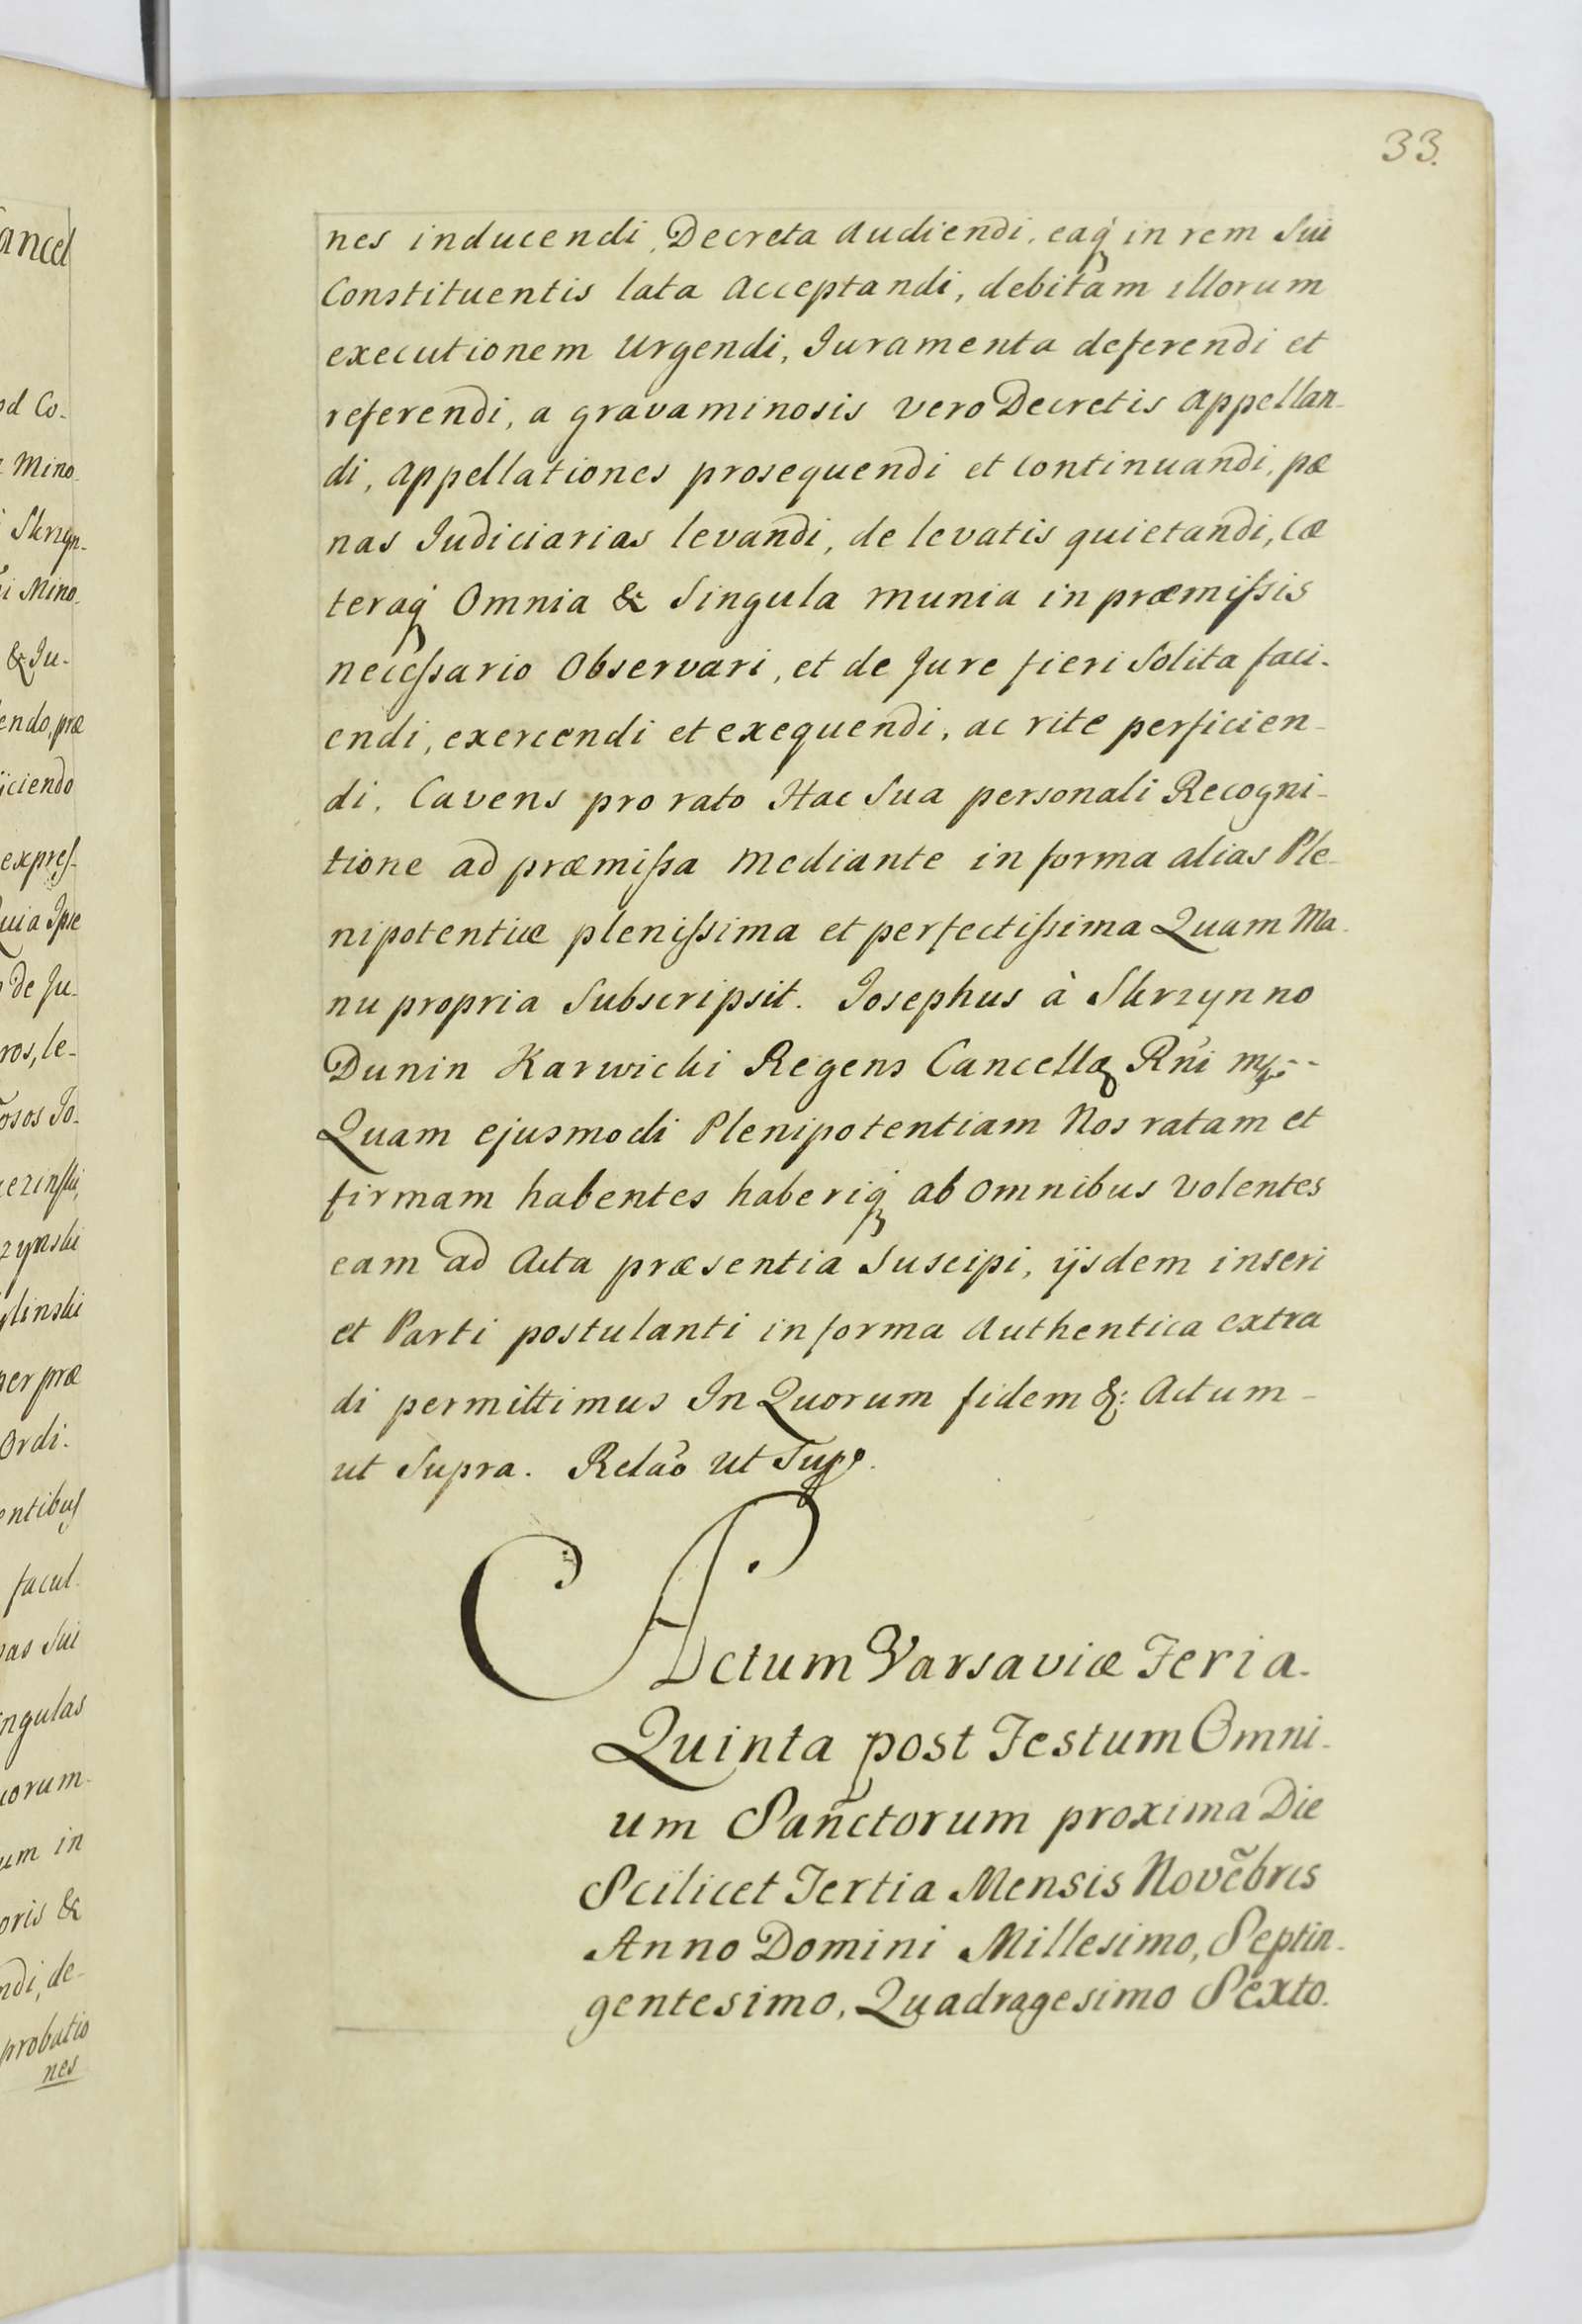 33.
nes inducendi, Decreta Audiendi, eaq́ in rem Sui
Constituentis lata Acceptandi, debitam illorum
executionem Urgendi, Juramenta deferendi et
referendi, a gravaminosis vero Decretis Appellan-
di, Appellationes prosequendi et continuandi, pæ
nas Judiciarias levandi, de levatis quietandi, Cæ
teraq́ Omnia & Singula munia in præmiſsis
neceſsario Observari, et de Jure fieri Solita faci-
endi, exercendi et exequendi, ac rite perficien-
di. Cavens pro rato Hac Sua personali Recogni-
tione ad præmiſsa mediante in forma alias Ple-
nipotentiæ pleniſsima et perfectiſsima Quam Ma-
nu propria Subscripsit. Josephus à Skrzynno
Dunin Karwicki Regens Cancellæ Rńi mp--
Quam ejusmodi Plenipotentiam Nos ratam et
firmam habentes haberiq́ ab omnibus volentes
eam ad Acta præsentia Suscipi, ijsdem inseri
et Parti postulanti in forma Authentica extra
di permittimus In Quorum fidem &: Actum -
ut Supra. Relão ut Supr.
Actum Varsaviæ Feria
Quinta post Festum Omni-
um Sanctorum proxima Die
Scilicet Tertia Mensis Novẽbris
Anno Domini Millesimo, Septin-
gentesimo, Quadragesimo Sexto.
ancel
od Co-
Mino-
Skrzyn-
i Mino-
& Ju-
endo, præ
ijciendo
expreſ-
uia Ipse
de Ju-
ros, le-
osos Jo-
zynski
ylinski
per præ
Ordi-
entibus
facul-
as Sui
ngulas
uorum
um in
oris &
ndi, de-
probatio
nes